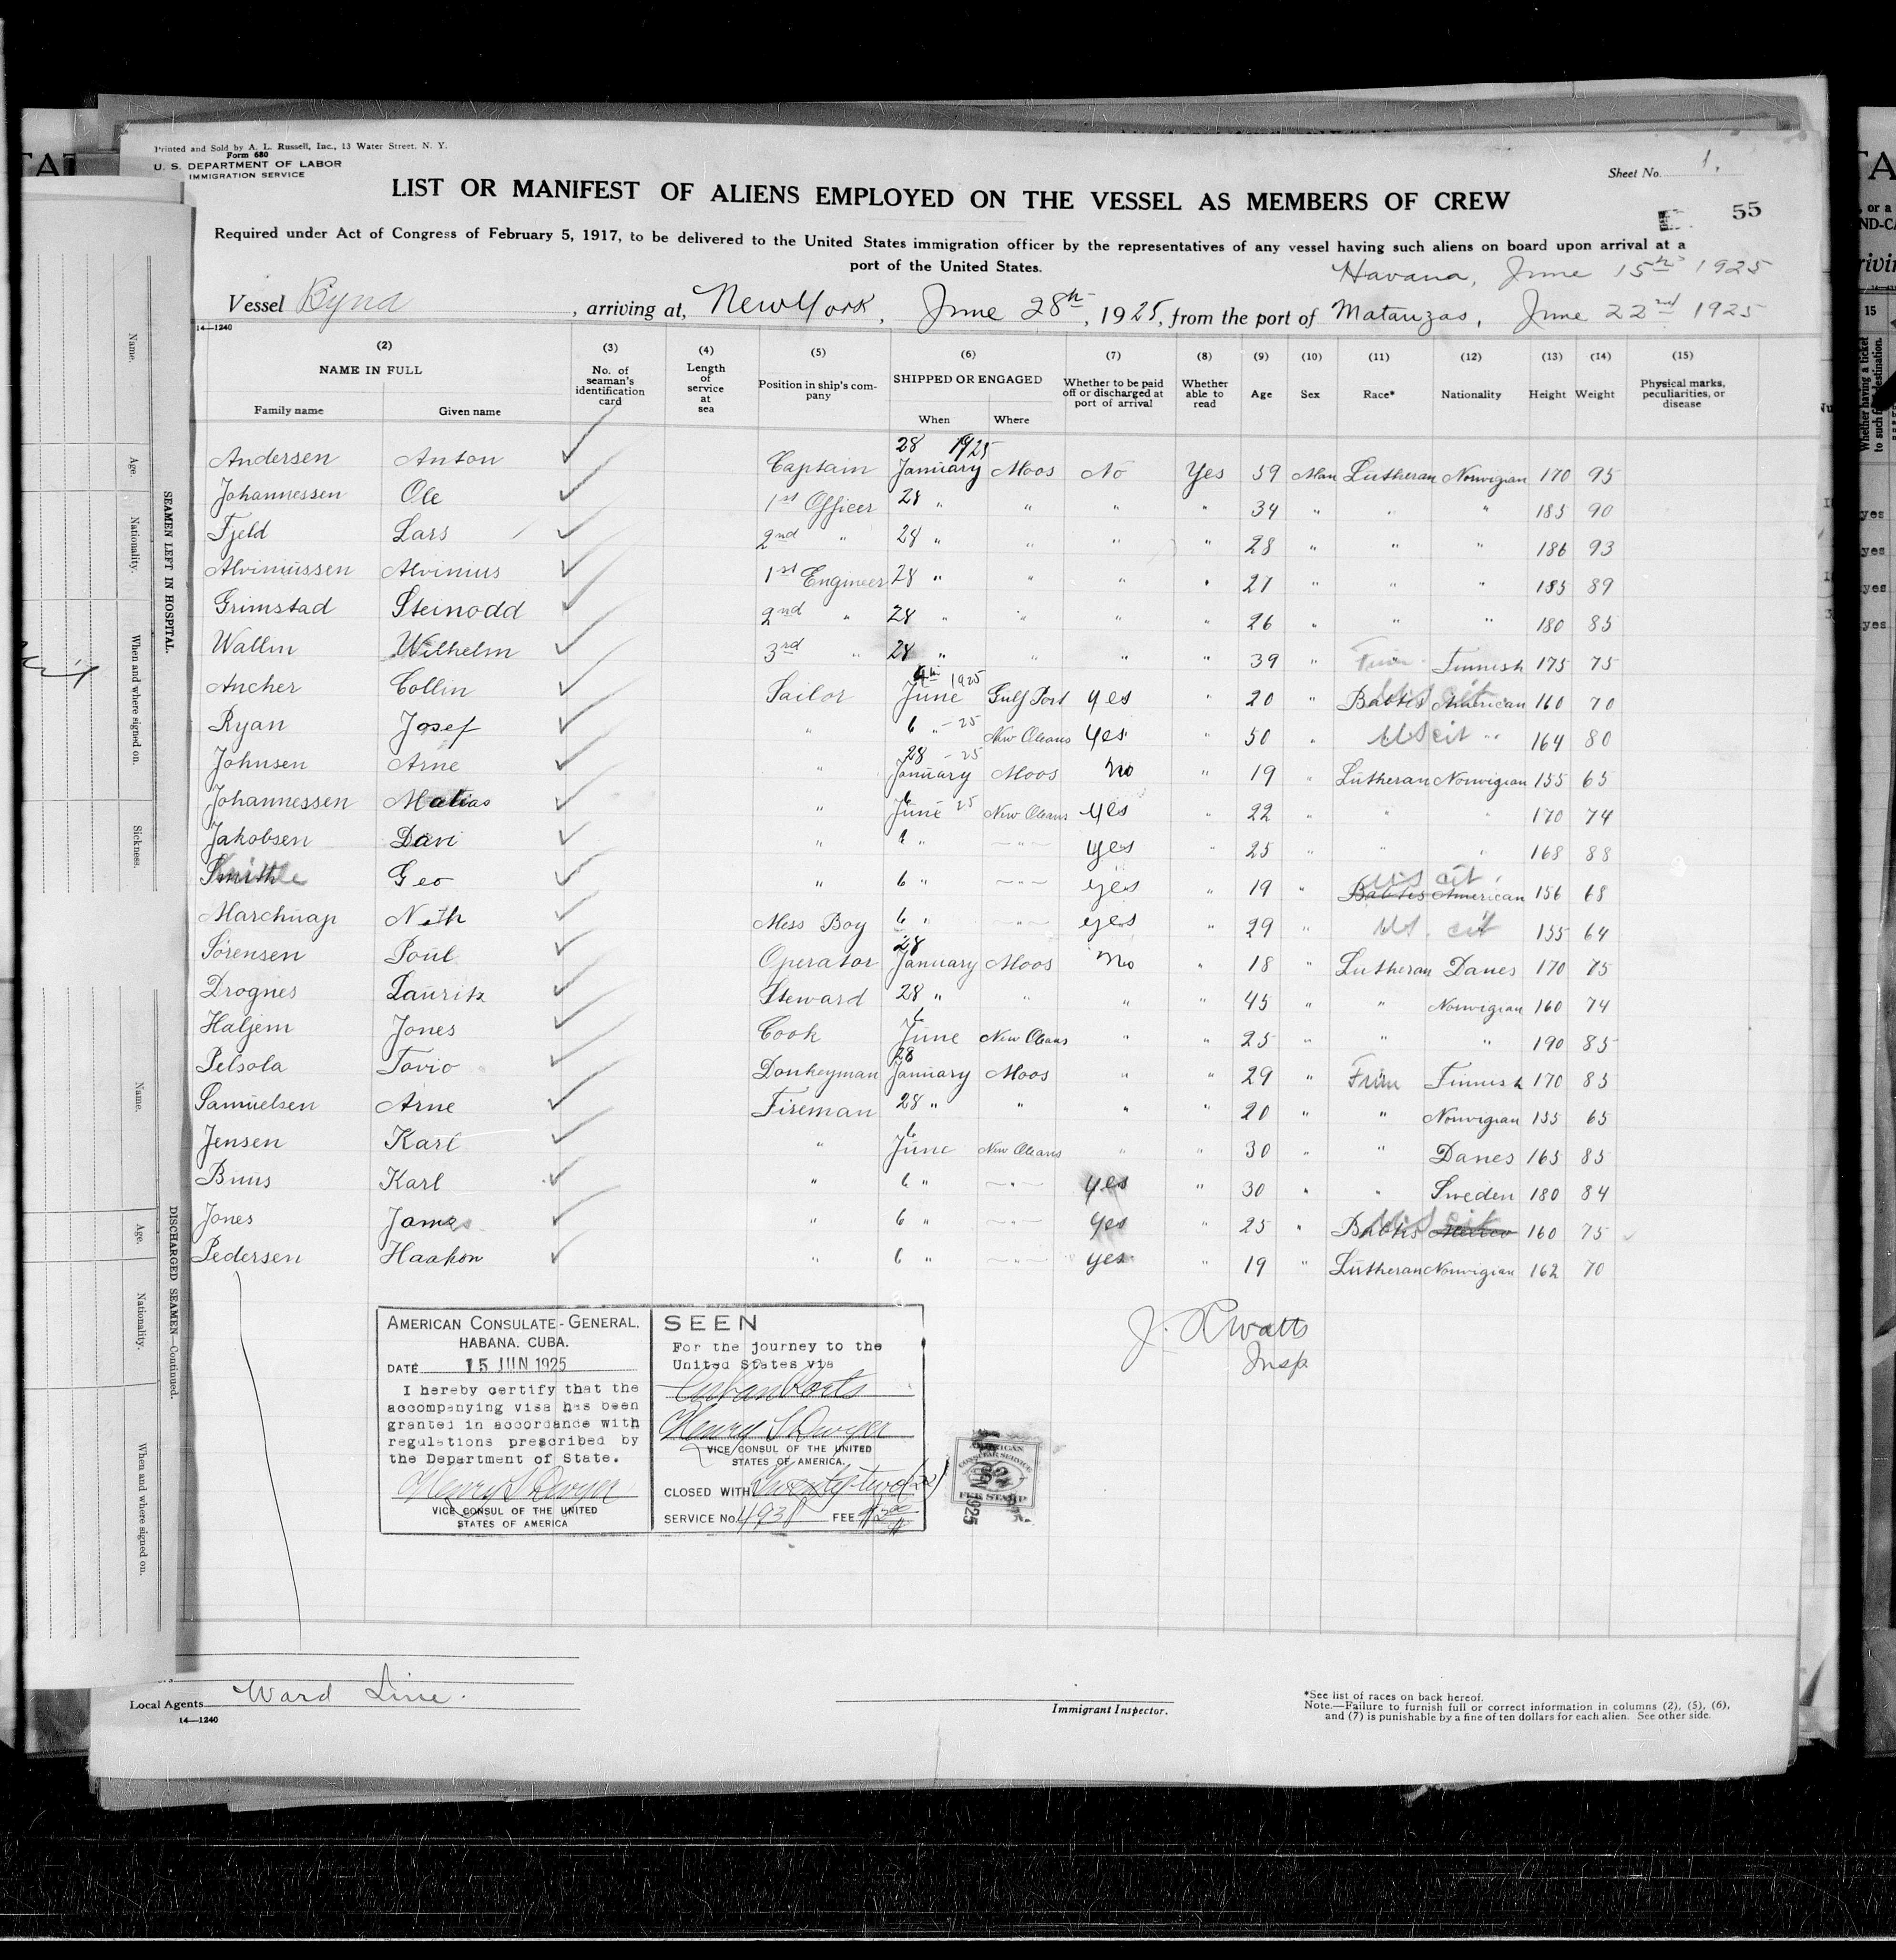 Printed and Sold by A. L. Russell, Inc., 13 Water Street. N. Y.
Form 680
U. S. DEPARTMENT OF LABOR
IMMIGRATION SERVICE
Sheet No. 1.
LIST OR MANIFEST OF ALIENS EMPLOYED ON THE VESSEL AS MEMBERS OF CREW
55
Required under Act of Congress of February 5, 1917, to be delivered to the United States immigration officer by the representatives of any vessel having such aliens on board upon arrival at a
port of the United States.
Havana, June 15th 1925
Vessel Byna, arriving at, New York, June 28th, 1925, from the port of Matanzas, June 22nd 1925
14—1240
(2) (3) (4) (5) (6) (7) (8) (9) (10) (11) (12) (13) (14) (15)
NAME IN FULL No. of seaman's identification card Length of service at sea Position in ship's company SHIPPED OR ENGAGED Whether to be paid off or discharged at port of arrival Whether able to read Age Sex Race* Nationality Height Weight Physical marks, peculiarities, or disease
Family name Given name When Where
28 1925
Andersen Anton Captain January Moos No Yes 39 Man Lutheran Norwigian 170 95
Johannessen Ole 1st Officer 28 " " " " 34 " " " 185 90
Fjeld Lars 2nd " 28 " " " " 28 " " " 186 93
Alvinussen Alvinius 1st Engineer 28 " " " " 27 " " " 185 89
Grimstad Steinodd 2nd " 28 " " " " 26 " " " 180 85
Wallin Wilhelm 3rd " 28 " " " " 39 " Finn Finnish 175 75
4th 1925
Ancher Collin Sailor June Gulf Port yes " 20 " American 160 70
Ryan Josef " 6 " -25 New Oleans yes " 50 " US cit " 164 80
28 - 25
Johnsen Arne " January Moos no " 19 " Lutheran Norwigian 155 65
Johannessen Matias " 6 June 25 New Oleans yes " 22 " " " 170 74
Jakobsen Davi " 6 " — " — yes " 25 " " " 168 88
Geo " 6 " — " — yes " 19 " US cit American 156 68
Marchnap Neth Mess Boy 6 " — " — yes " 29 " US. cit 155 64
28
Sørensen Poul Operator January Moos no " 18 " Lutheran Danes 170 75
Drognes Lauritz Steward 28 " " " " 45 " " Norwigian 160 74
Haljem Jones Cook 6 June New Oleans " " 25 " " " 190 85
28
Pelsola Tovio Donkeyman January Moos " " 29 " Finn Finnish 170 85
Samuelsen Arne Fireman 28 " " " " 20 " " Norwigian 155 65
Jensen Karl " 6 June New Oleans " " 30 " " Danes 165 85
Buus Karl " 6 " — " — yes " 30 " " Sweden 180 84
Jones James " 6 " — " — yes " 25 " US cit 160 75
Pedersen Haakon " 6 " — " — yes " 19 " Lutheran Norwigian 162 70
J. R Watts
Insp.
AMERICAN CONSULATE-GENERAL,
HABANA, CUBA.
DATE 15 JUN 1925
I hereby certify that the
accompanying visa has been
granted in accordance with
regulations prescribed by
the Department of State.
Henry S Dwyer
VICE CONSUL OF THE UNITED
STATES OF AMERICA
SEEN
For the journey to the
United States via
Cuban Ports
Henry S Dwyer
VICE CONSUL OF THE UNITED
STATES OF AMERICA.
CLOSED WITH Twenty-two (22)
SERVICE No. 4938 FEE $2.00
AMERICAN
CONSULAR SERVICE
$2
FEE STAMP
1925
Local Agents Ward Line.
14—1240
Immigrant Inspector.
*See list of races on back hereof.
Note.—Failure to furnish full or correct information in columns (2), (5), (6),
and (7) is punishable by a fine of ten dollars for each alien. See other side.
SEAMEN LEFT IN HOSPITAL.
Name. Age. Nationality. When and where signed on. Sickness.
DISCHARGED SEAMEN—Continued.
Name. Age. Nationality. When and where signed on.
15
Whether having a ticket
to such final destination.
yes
yes
yes
yes